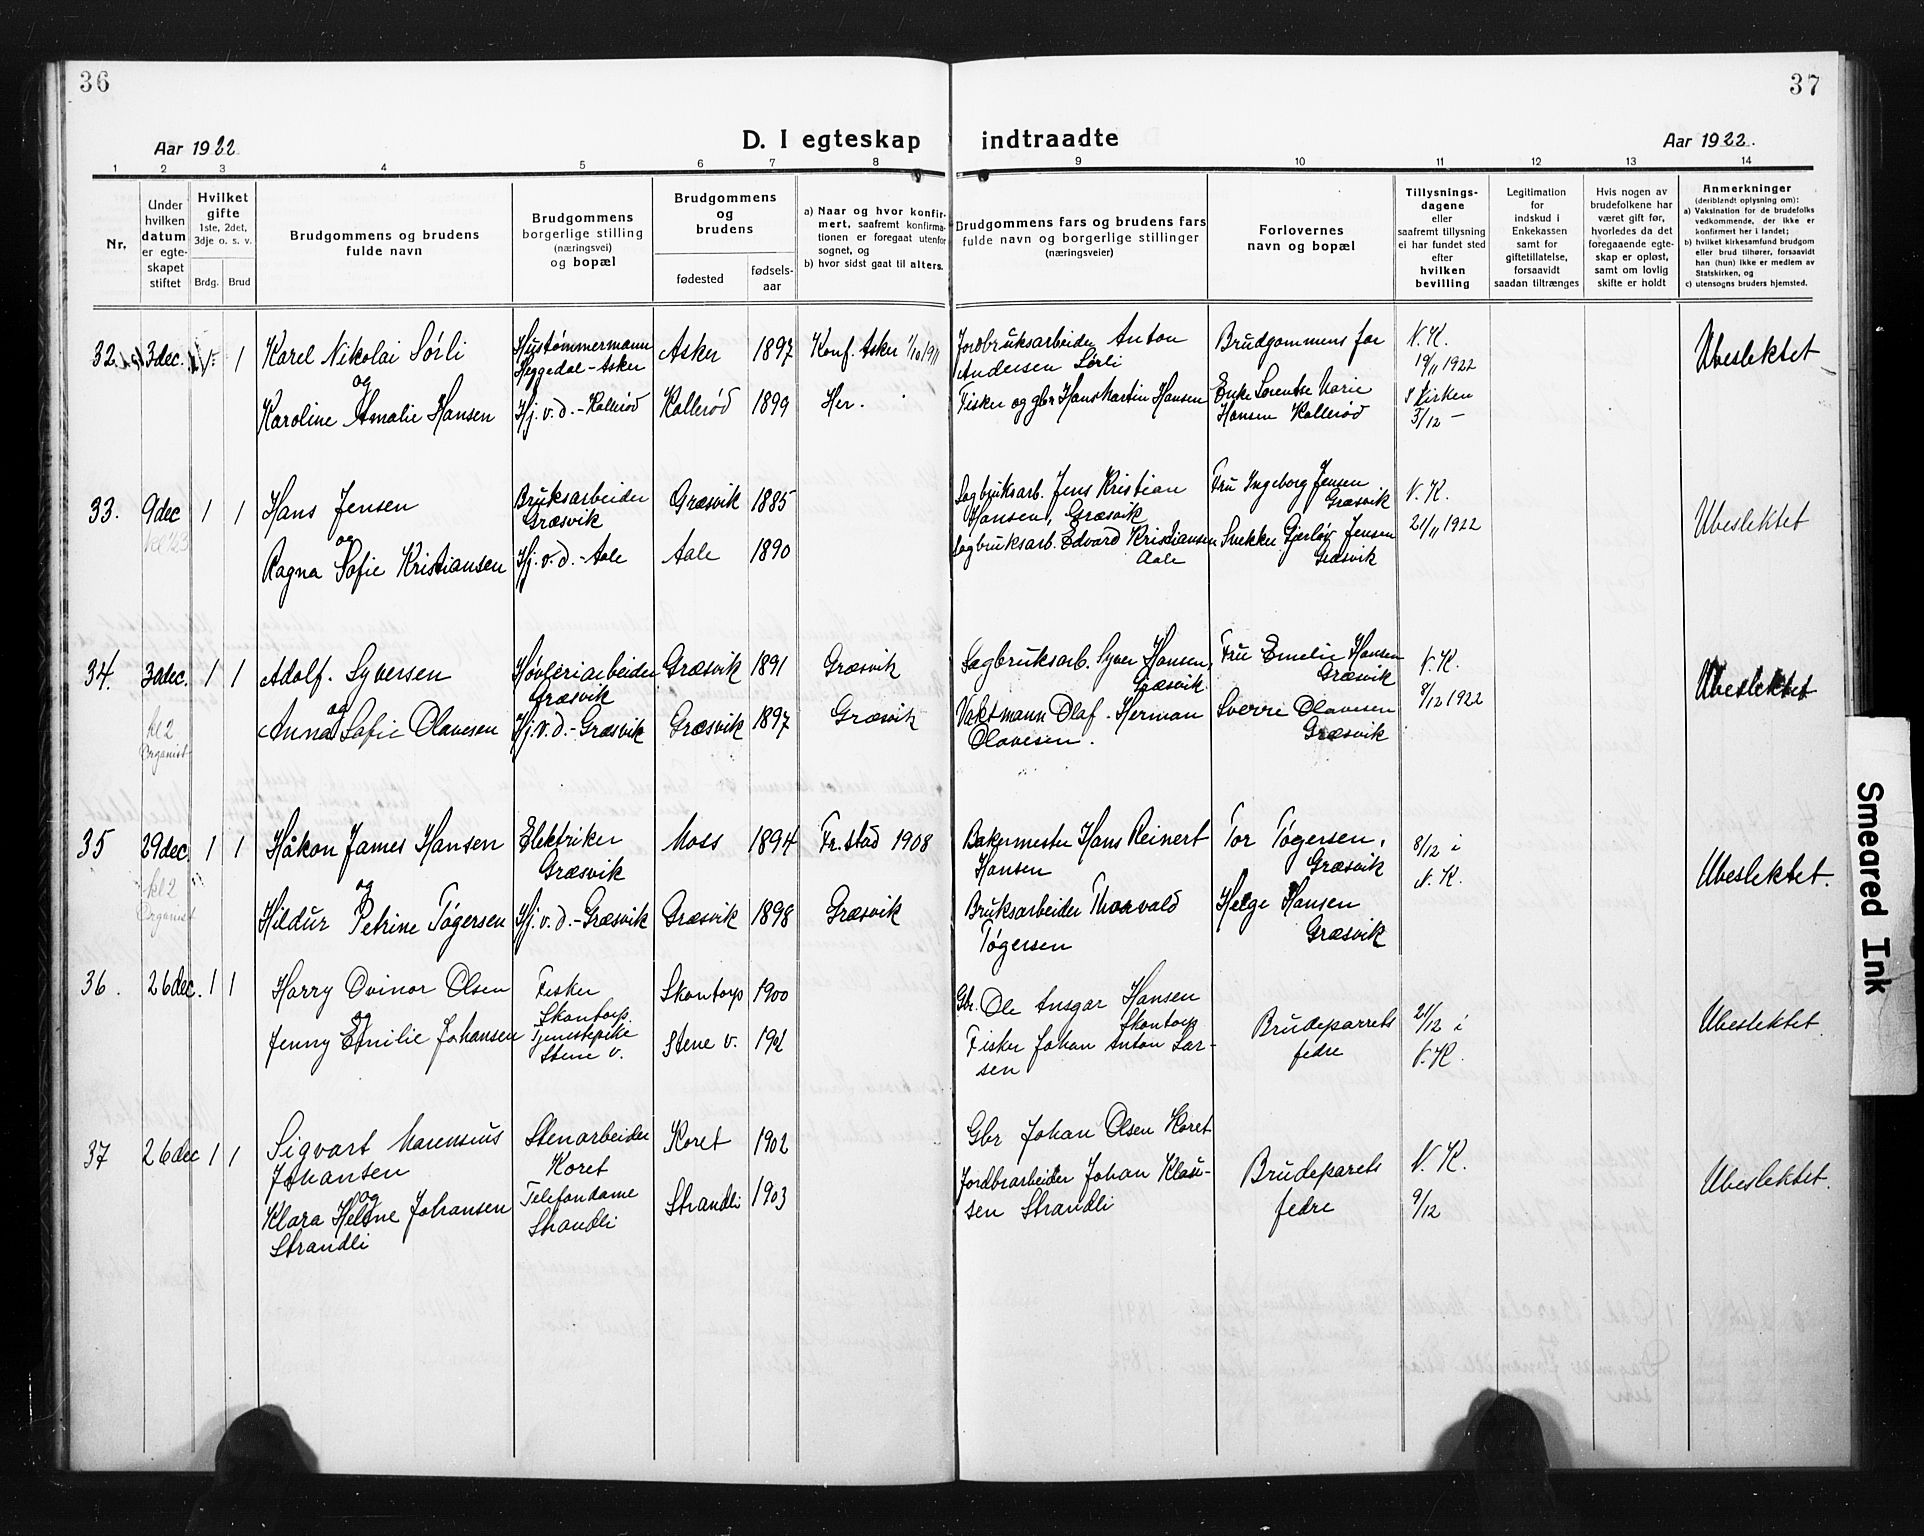 36
37
Aar 1922
D. I egteskap indtraadte
Aar 1922.
1 2 3 4 5 6 7 8 9 10 11 12 13 14
Nr.
Under hvilken datum er egteskapet stiftet
Hvilket gifte 1ste, 2det, 3dje o. s. v.
Brdg. Brud
Brudgommens og brudens fulde navn
Brudgommens borgerlige stilling (næringsvei) og bopæl
Brudgommens og brudens
fødested
fødsels-aar
a) Naar og hvor konfirmert, saafremt konfirmationen er foregaat utenfor sognet, og
b) hvor sidst gaat til alters.
Brudgommens fars og brudens fars fulde navn og borgerlige stillinger (næringsveier)
Forlovernes navn og bopæl
Tillysningsdagene eller saafremt tillysning ei har fundet sted efter hvilken bevilling
Legitimation for indskud i Enkekassen samt for giftetillatelse, forsaavidt saadan tiltrænges
Hvis nogen av brudefolkene har været gift før, hvorledes da det foregaaende egteskap er opløst, samt om lovlig skifte er holdt
Anmerkninger (deriblandt oplysning om):
a) Vaksination for de brudefolks vedkommende, der ikke er konfirmert her i landet;
b) hvilket kirkesamfund brudgom eller brud tilhører, forsaavidt han (hun) ikke er medlem av Statskirken, og
c) utensogns bruders hjemsted.
32. 3dec. 1 1 Karel Nikolai Sörli
Hustømmermann Heggedal - Asker
Asker 1897 Konf. Asker 1/10 1911
Jordbruksarbeider Anton Andersen Sörli
Brudgommens far
N. K. 19/11 1922
Ubeslektet
og
Karoline Amalie Hansen
Hj. v. d. - Kallerød
Kallerød 1899 Her.
Fisker og gbr Hans Martin Hansen
Enke Lorentse Marie Hansen Kallerød
I Kirken 3/12 -
33. 9dec 1 1 Hans Jensen
Bruksarbeider Græsvik
Græsvik 1885
Sagbruksarb. Jens Kristian Hansen, Græsvik
Fru Ingeborg Jensen Græsvik
N. K. 21/11 1922
Ubeslektet
og
Ragna Sofie Kristiansen
Hj. v. d. - Aale
Aale 1890
Sagbruksarb. Edvard Kristiansen Aale
Snekker Gjerløv Jensen Græsvik
34. 30dec. 1 1 Adolf. Syversen
Høvleriarbeider Græsvik
Græsvik 1891 Græsvik
Sagbruksarb. Syver Hansen, Græsvik
Fru Emelie Hansen Græsvik
N. K. 8/12 1922
Ubeslektet
kl 2 Organist
og
Anna Sofie Olavesen
Hj. v. d. - Græsvik
Græsvik 1897 Græsvik
Vaktmann Olaf. Herman Olavesen.
Sverre Olavesen Græsvik
35 29dec. 1 1 Håkon James Hansen
Elektriker Græsvik
Moss 1894 Fr.stad 1908
Bakermester Hans Reinert Hansen
Tor Tøgersen, Græsvik
8/12 i N. K.
Ubeslektet.
kl 2 Organist
og
Hildur Petrine Tøgersen
Hj. v. d. - Græsvik
Græsvik 1898 Græsvik
Bruksarbeider Thorvald Tøgersen
Helge Hansen Græsvik
36. 26dec. 1 1 Harry Ovinor Olsen
Fisker Skantorp.
Skantorp 1900
Gbr. Ole Ansgar Hansen Skantorp
Brudeparrets fedre
21/12 i N. K.
Ubeslektet.
og
Jenny Emilie Johansen
Tjenestepike Stene v.
Stene v.
Fisker Johan Anton Larsen
37 26dec 1 1 Sigvart Marensius Johansen
Stenarbeider Koret
Koret 1902
Gbr Johan Olsen Koret
Brudeparets fedre
N. K. 9/12
Ubeslektet.
og
Klara Helene Johansen Strandli
Telefondame Strandli
Strandli 1903
Jordbrarbeider Johan Klausen Strandli
Smeared Ink